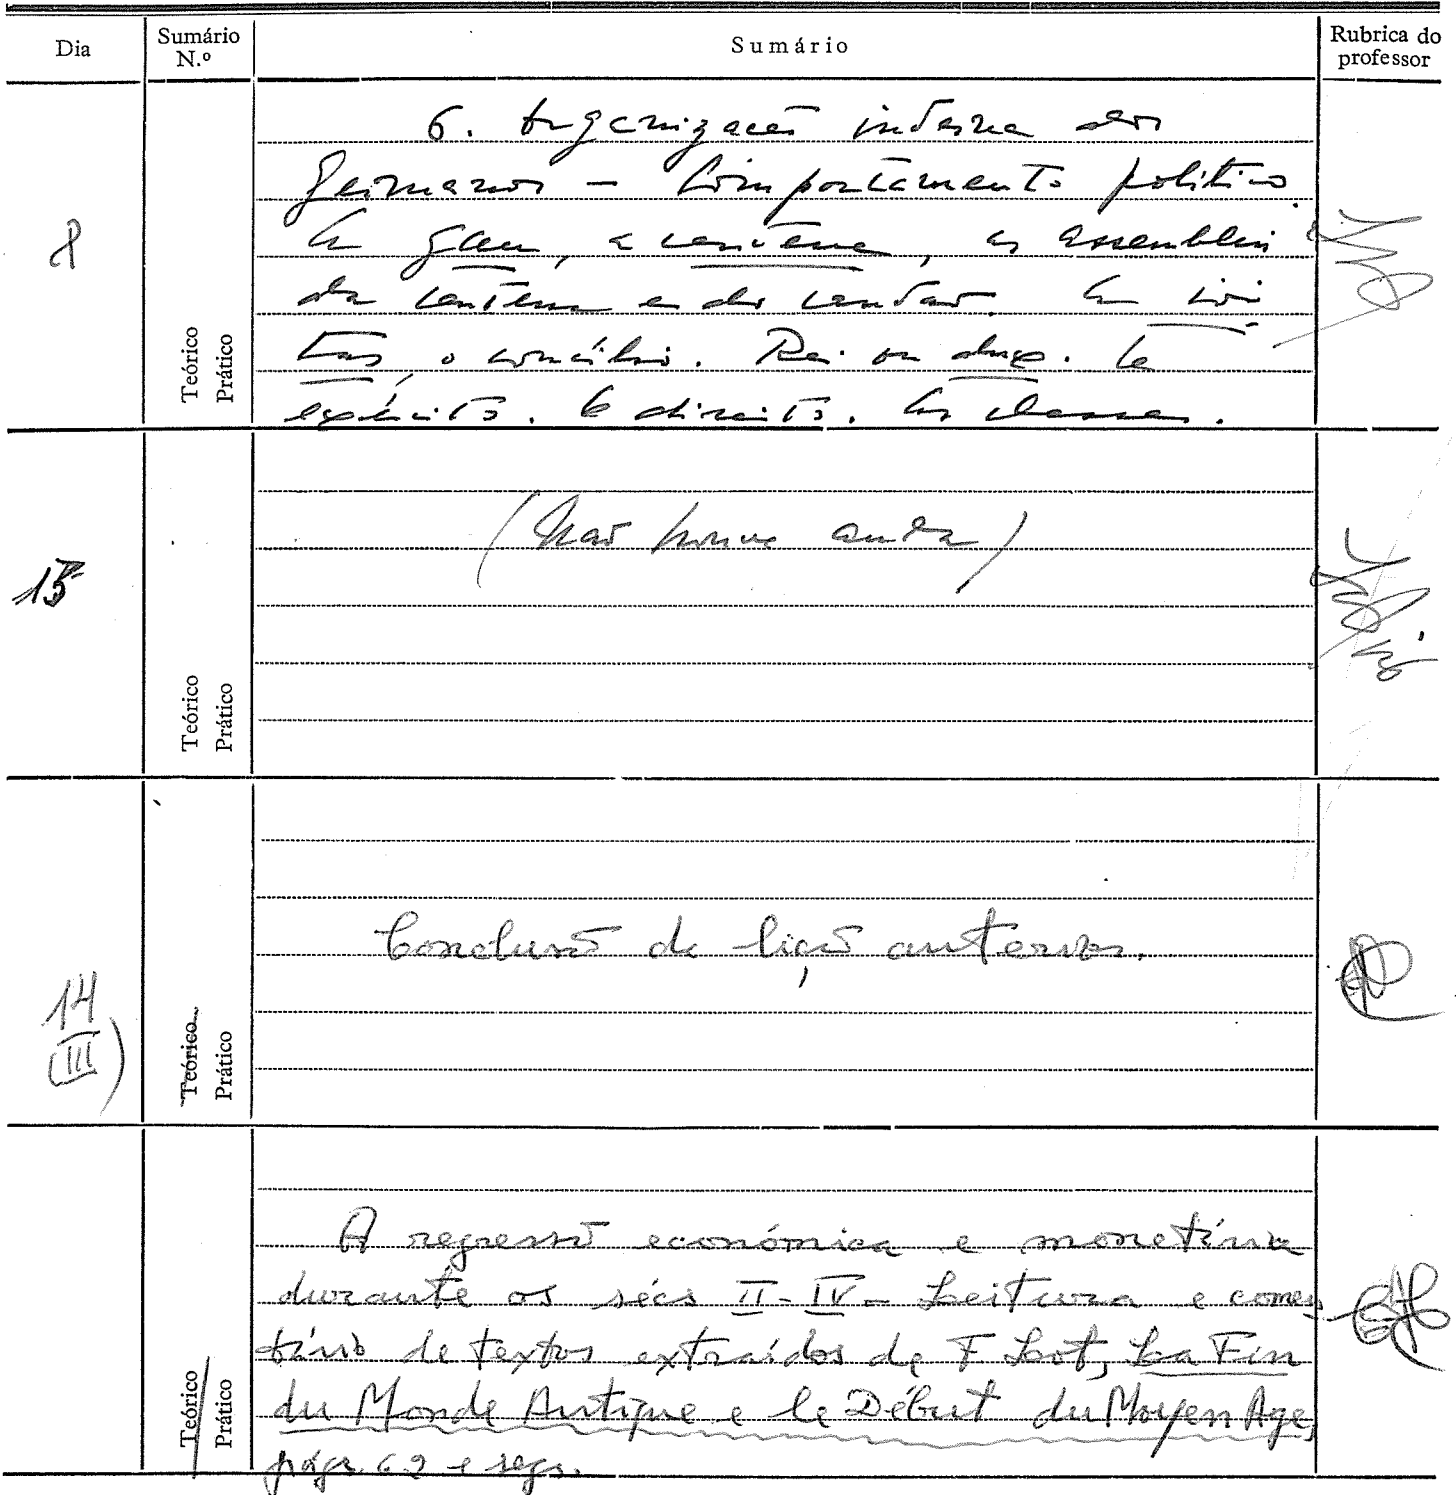 Dia
Sumário N.º
Sumário
Rubrica do professor
8
Teórico
Prático
6. Organização interna dos
Germanos – Comportamento político.
O gau, a centena, as assembleias
da centena e do cantão. A civi
tas, o concílio. Rei ou dux. O
exército. O direito. As classes.
15
Teórico
Prático
(Não houve aula)
14
(III)
Teórico
Prático
Conclusão da lição anterior.
Teórico
Prático
A regressão económica e monetária
durante os sécs II - IV - Leitura e comen
tário de textos extraídos de F Lot, La Fin
du Monde Antique e le Début du Moyen Age,
págs. 62 e segs.